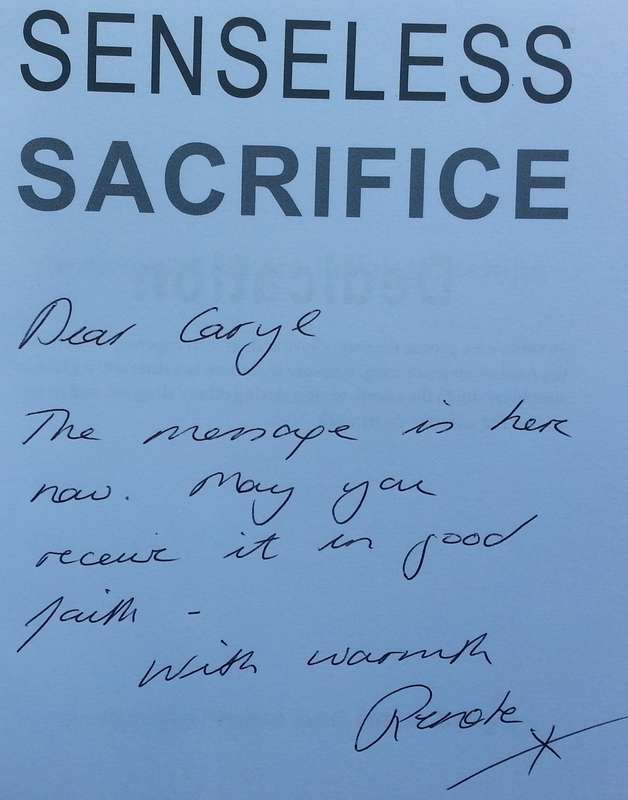 SENSELESS
SACRIFICE
Dear Caryl
The message is here
now. May you
receive it in good
faith -
With warmth
Renate